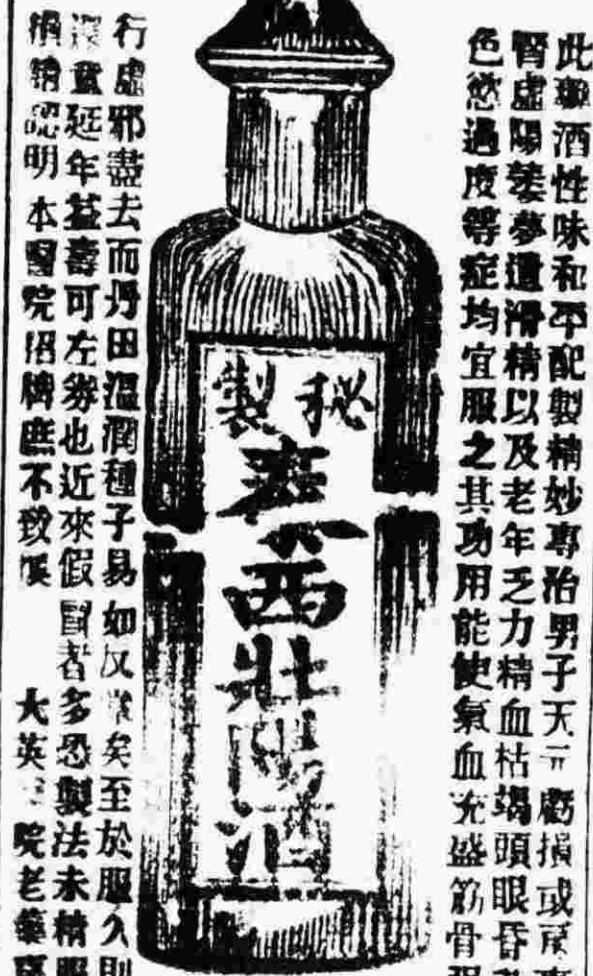 此 酒性味和平配製精妙專治男子天元虧損或
腎虛陽萎夢遺滑精以及老年乏力精血枯竭頭眼昏
色慾過度等症均宜服之其功用能使氣血充盛筋骨
秘製
泰西壯陽酒
行虛邪盡去而丹田溫潤種子易如反掌矣至於服久則
童延年益壽可左券也近來假冒者多恐製法未精服
認明本醫院招牌庶不致悞
大英 院老藥